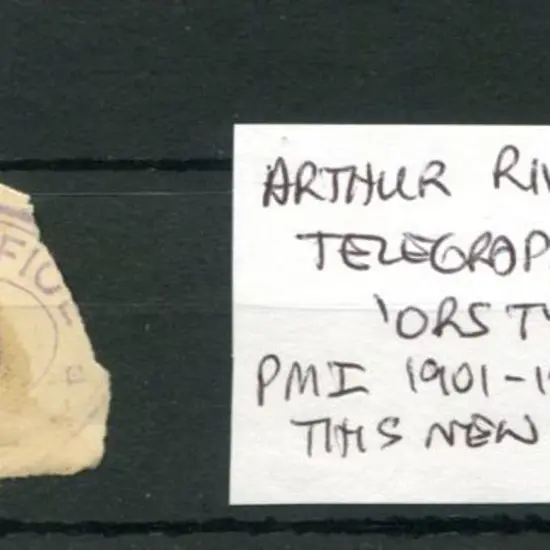 FICE
ARTHUR RIV
TELEGRAP
'ORS TY
PMI 1901-1
THIS NEW